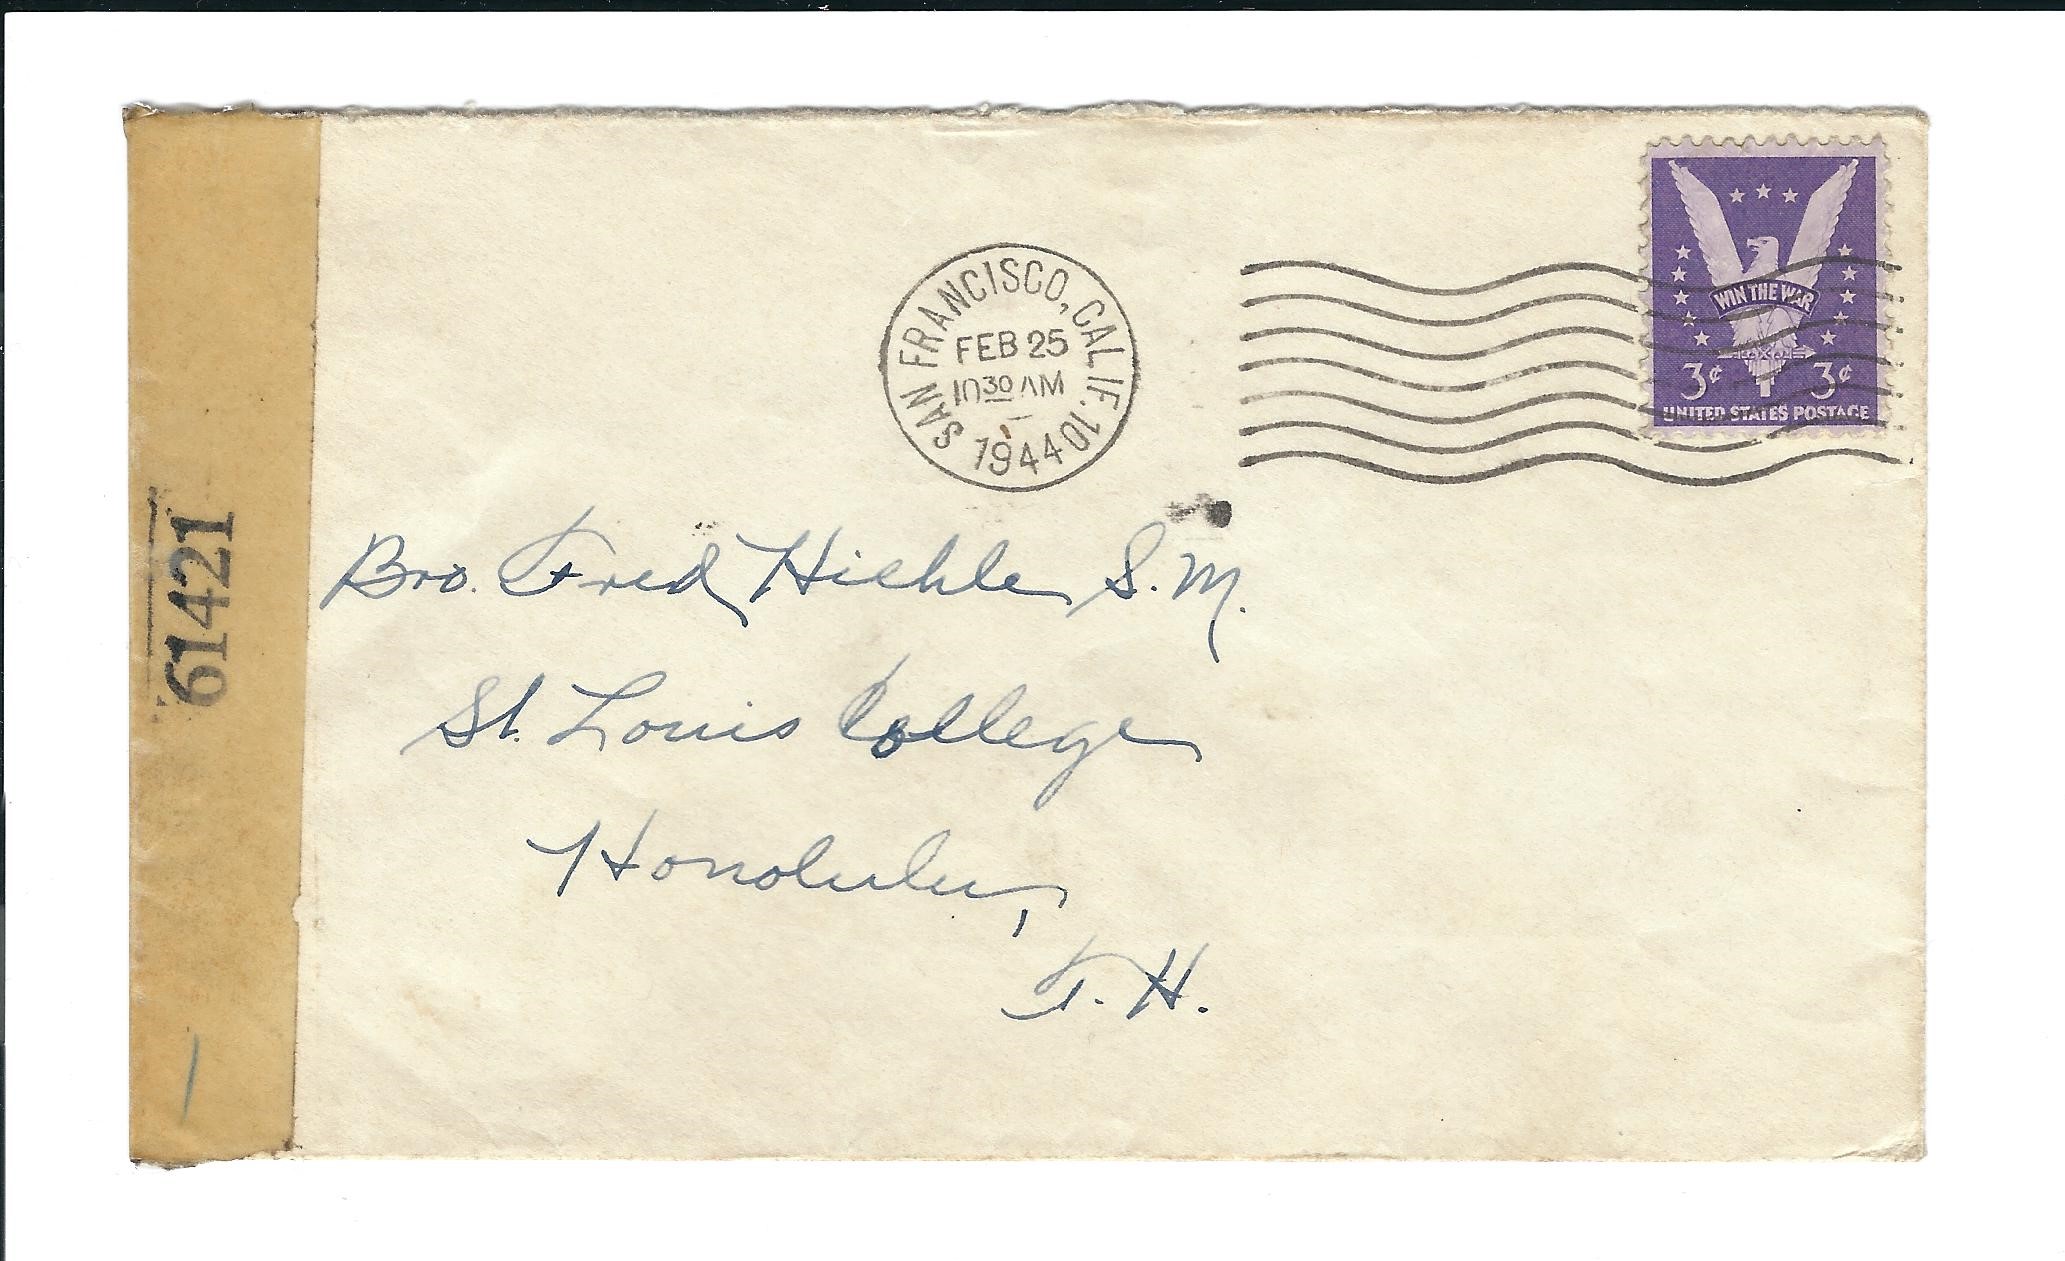 SAN FRANCISCO, CALIF. 10
FEB 25
10 30 AM
1944
WIN THE WAR
3¢ 3¢
UNITED STATES POSTAGE
61421
Bro. Fred Hiehle S.M.
St. Louis College
Honolulu,
T. H.